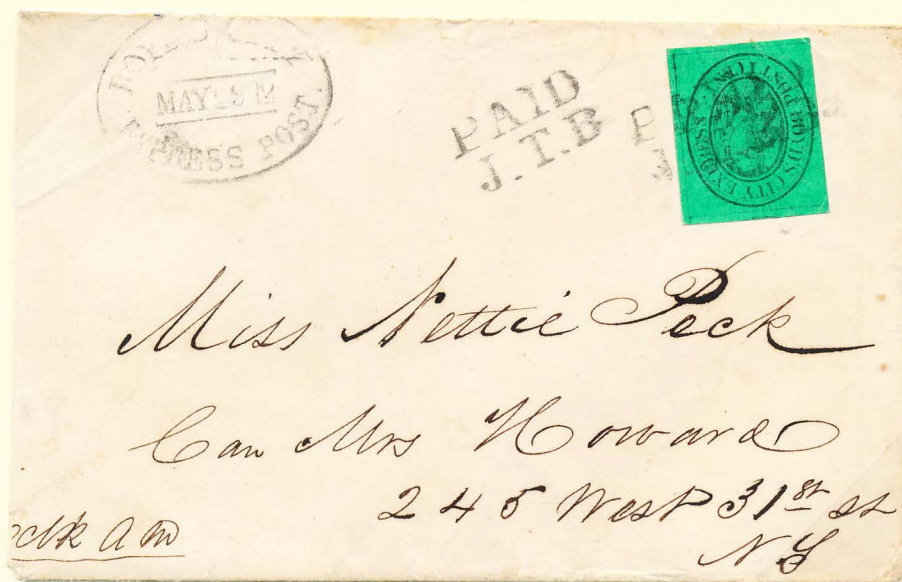 BOYD'S CITY
MAY 5 12
EXPRESS POST.
PAID
J.T.B
P
BOYD'S CITY EXPRESS POST 1 CENT
Miss Nettie Peck
Care Mrs Howard
245 West 31st St
NY